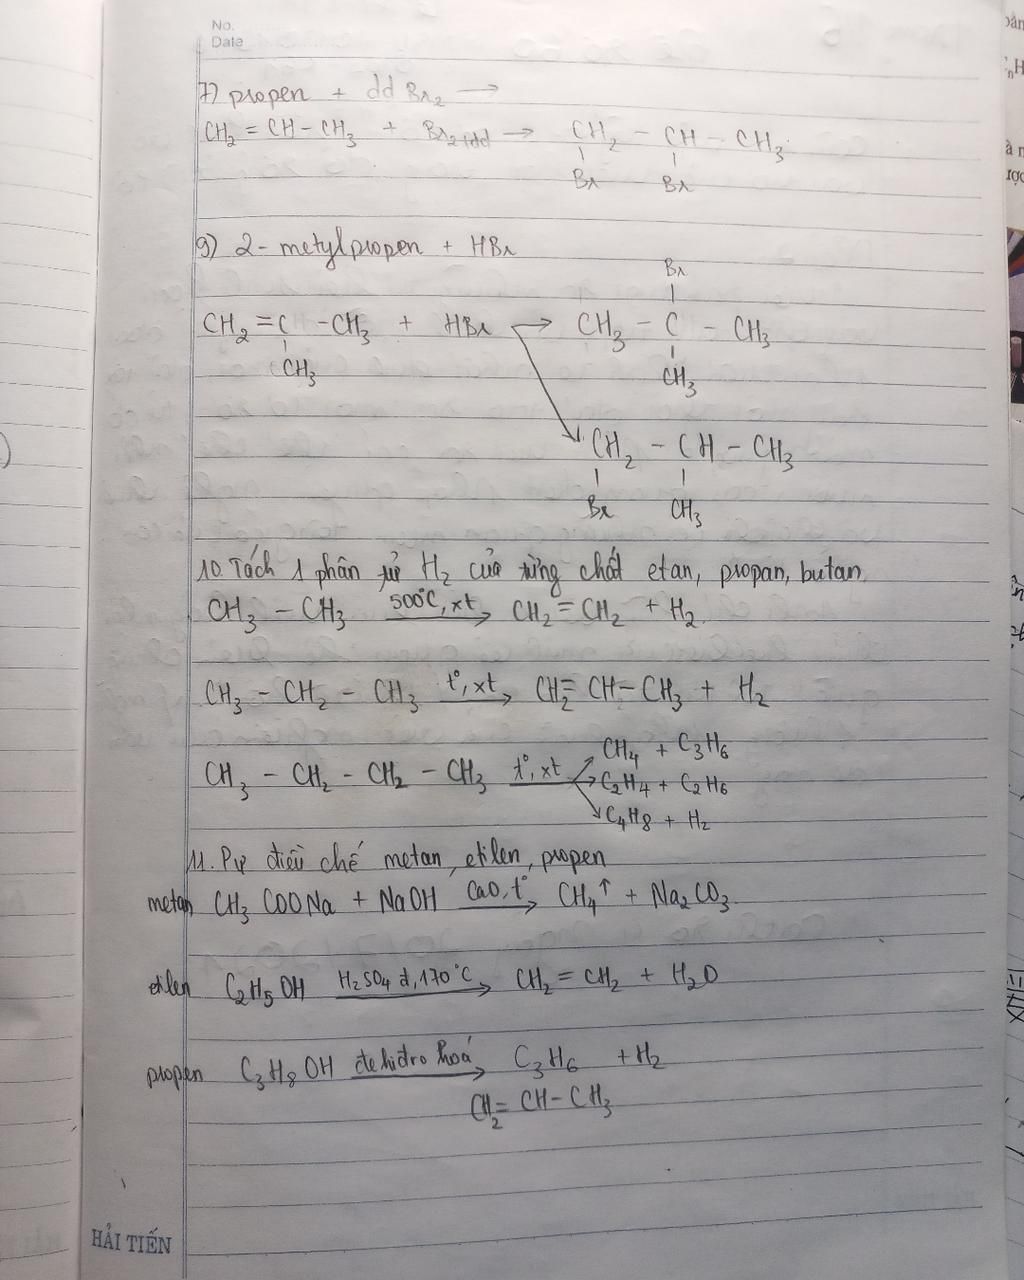 No.
Date
7) propen + dd Br2 →
CH2 = CH - CH3 + Br2 (dd) → CH2 - CH - CH3
Br Br
9) 2- metylpropen + HBr
Br
CH2 = C - CH3 + HBr → CH3 - C - CH3
CH3 CH3
CH2 - CH - CH3
Br CH3
10. Tách 1 phân tử H2 của từng chất etan, propan, butan
CH3 - CH3 500°C, xt → CH2 = CH2 + H2
CH3 - CH2 - CH3 t°, xt → CH2 = CH - CH3 + H2
CH4 + C3H6
CH3 - CH2 - CH2 - CH3 t°, xt → C2H4 + C2H6
C4H8 + H2
11. Pư điều chế metan, etilen, propen
metan CH3COONa + NaOH CaO, t° → CH4↑ + Na2CO3
etilen C2H5OH H2SO4 đ, 170°C → CH2 = CH2 + H2O
propen C3H8OH đehiđro hoá → C3H6 + H2
CH2 = CH - CH3
HẢI TIẾN